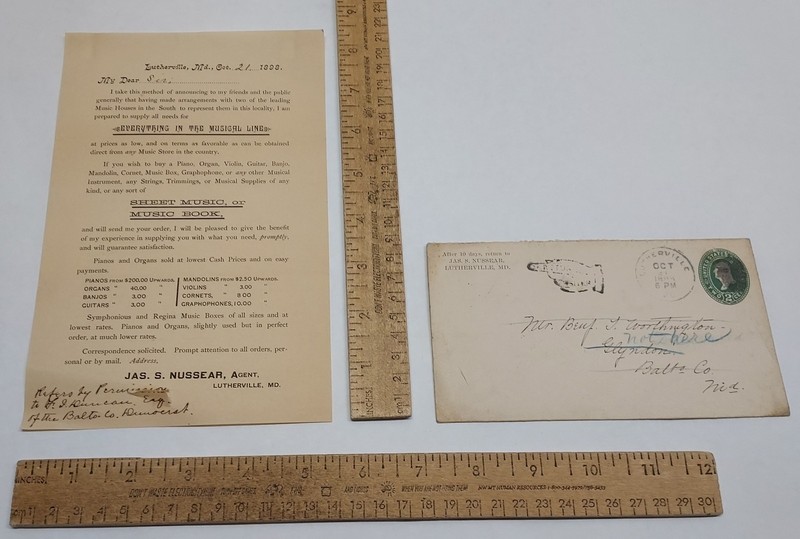 Lutherville, Md., Oct. 21, 1898.
My Dear Sir,
I take this method of announcing to my friends and the public
generally that having made arrangements with two of the leading
Music Houses in the South to represent them in this locality, I am
prepared to supply all needs for
EVERYTHING IN THE MUSICAL LINE
at prices as low, and on terms as favorable as can be obtained
direct from any Music Store in the country.
If you wish to buy a Piano, Organ, Violin, Guitar, Banjo,
Mandolin, Cornet, Music Box, Graphophone, or any other Musical
Instrument, any Strings, Trimmings, or Musical Supplies of any
kind, or any sort of
SHEET MUSIC, or
MUSIC BOOK,
and will send me your order, I will be pleased to give the benefit
of my experience in supplying you with what you need, promptly,
and will guarantee satisfaction.
Pianos and Organs sold at lowest Cash Prices and on easy
payments.
PIANOS FROM $200.00 UPWARDS.
ORGANS " 40.00 "
BANJOS " 3.00 "
GUITARS " 3.00 "
MANDOLINS FROM $2.50 UPWARDS.
VIOLINS " 3.00 "
CORNETS " 8.00 "
GRAPHOPHONES, 10.00 "
Symphonious and Regina Music Boxes of all sizes and at
lowest rates. Pianos and Organs, slightly used but in perfect
order, at much lower rates.
Correspondence solicited. Prompt attention to all orders, per-
sonal or by mail. Address,
JAS. S. NUSSEAR, AGENT,
LUTHERVILLE, MD.
Refers by Permission
to Duncan Esq.
of the Balto Co. Democrat.
After 10 days, return to
JAS. S. NUSSEAR,
LUTHERVILLE, MD.
LUTHERVILLE
OCT
6 PM
UNITED STATES
Mr. Benj. T. Worthington
not here
Glyndon
Balto Co.
Md.
INCHES 1 2 3 4 5 6 7 8 9 10 11 12
1 2 3 4 5 6 7 8 9 10 11 12 13 14 15 16 17 18 19 20 21 22 23 24 25 26 27 28 29 30